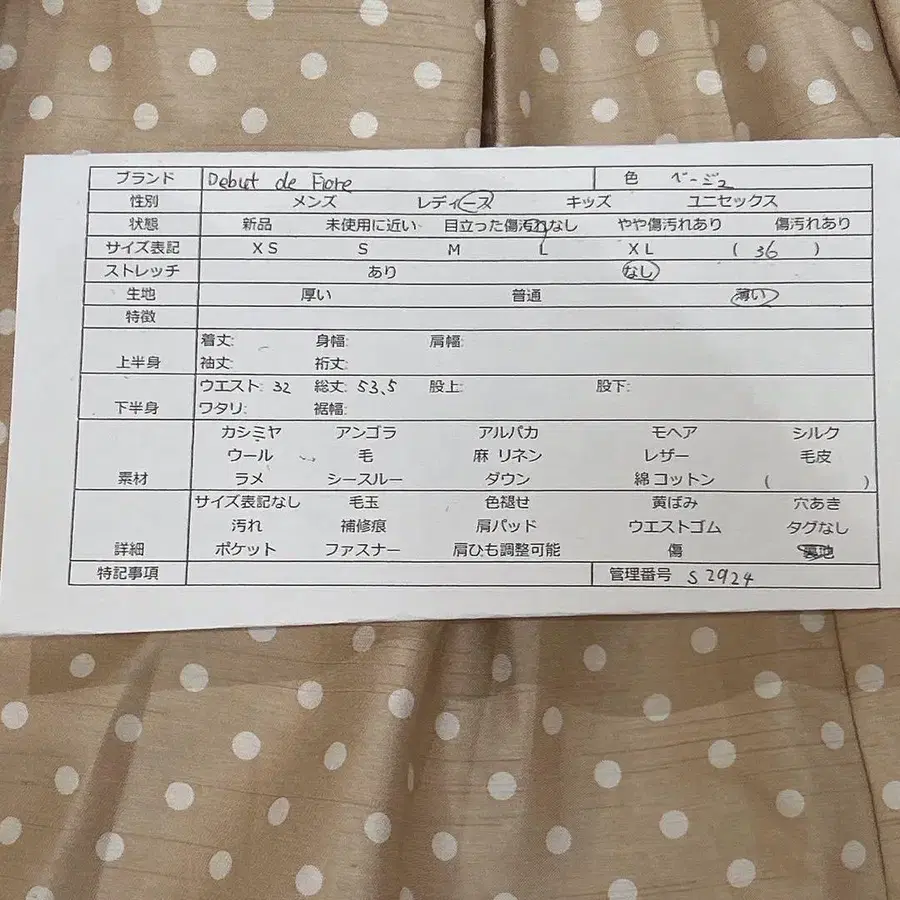 ブランド Debut de Fiore 色 ベージュ
性別 メンズ レディース キッズ ユニセックス
状態 新品 未使用に近い 目立った傷汚れなし やや傷汚れあり 傷汚れあり
サイズ表記 XS S M L XL ( 36 )
ストレッチ あり なし
生地 厚い 普通 薄い
特徴
着丈: 身幅: 肩幅:
上半身 袖丈: 裄丈:
ウエスト: 32 総丈: 53.5 股上: 股下:
下半身 ワタリ: 裾幅:
カシミヤ アンゴラ アルパカ モヘア シルク
ウール 毛 麻 リネン レザー 毛皮
素材 ラメ シースルー ダウン 綿 コットン ( )
サイズ表記なし 毛玉 色褪せ 黄ばみ 穴あき
汚れ 補修痕 肩パッド ウエストゴム タグなし
詳細 ポケット ファスナー 肩ひも調整可能 傷 裏地
特記事項 管理番号 S2924